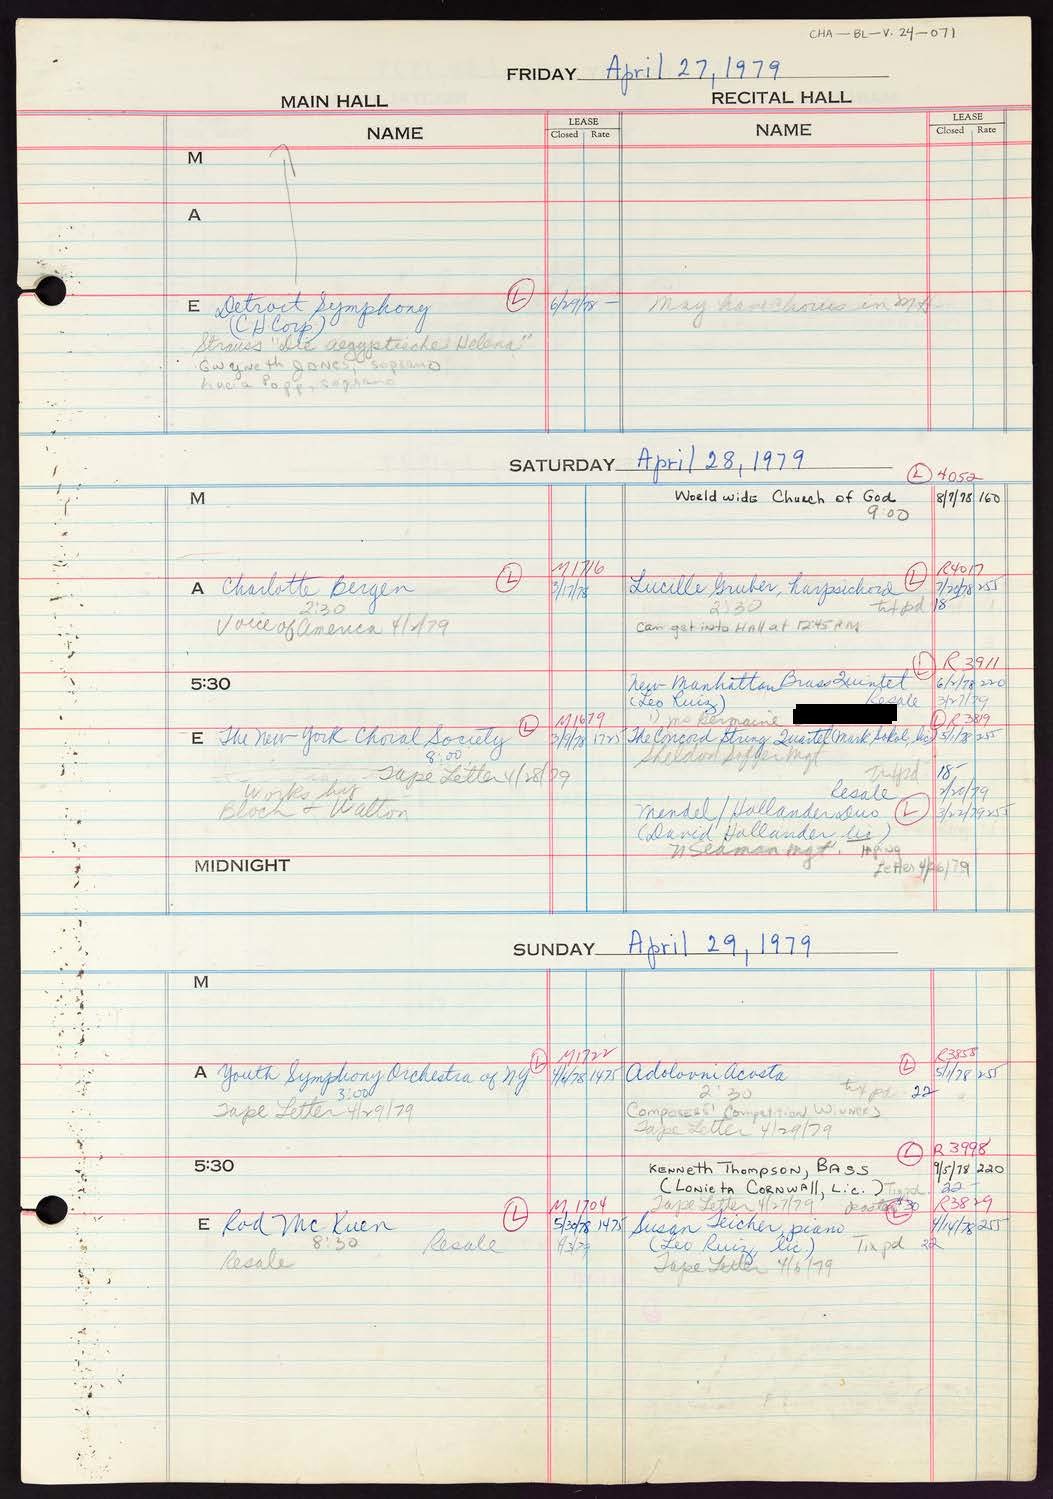 CHA—BL—V. 24—071
FRIDAY April 27, 1979
MAIN HALL
RECITAL HALL
NAME
LEASE
Closed Rate
NAME
LEASE
Closed Rate
M
A
E Detroit Symphony (L) 6/29/78 —
May have chorus in MH
(CH Corp)
Strauss "Die aegyptische Helena"
Gwyneth Jones, soprano
Lucia Popp, soprano
SATURDAY April 28, 1979
(L) 4052
M
World wide Church of God 8/7/78 160
9:00
M1716
A Charlotte Bergen (L) 3/17/78
2:30
Voice of America 4/2/79
R4017
Lucille Gruber, harpsichord (L) 7/20/78 255
2:30 tix pd 18
Can get into Hall at 12:45 PM
5:30
(L) R 3911
New Manhattan Brass Quintet 6/2/78 220
(Leo Ruiz) Resale 3/27/79
M1679
E The New York Choral Society (L) 3/9/78 1725
8:00
Tape Letter 4/28/79
Works by
Bloch & Walton
(L) R 3819
The Concord String Quartet (Mark Sokol, lic) 5/1/78 255
Sheldon Soffer Mgt
Tix pd 18—
Resale 2/20/79
Mendel/Hollander Duo (L) 3/22/79 255
(David Hollander lic)
Seaman Mgt.
Letter 4/26/79
MIDNIGHT
SUNDAY April 29, 1979
M
M1722
A Youth Symphony Orchestra of NY (L) 4/6/78 1475
3:00
Tape Letter 4/29/79
R3855
Adolovni Acosta (L) 5/1/78 255
2:30 tix pd 22
Composers' Competition Winners
Tape Letter 4/29/79
5:30
(L) R 3998
Kenneth Thompson, Bass 9/5/78 220
(Lonieta Cornwall, Lic.) Tix pd. 22—
Tape Letter 4/27/79
M 1704
E Rod McKuen (L) 5/30/78 1475
8:30 Resale
Resale
(L) R3829
Susan Teicher, piano 4/14/78 255
(Leo Ruiz, lic.) Tix pd 22
Tape Letter 4/6/79